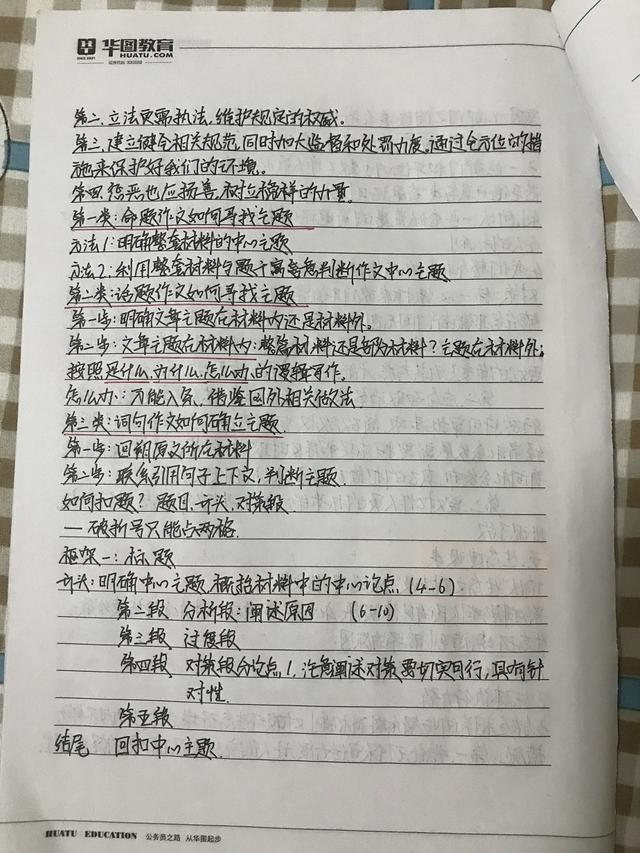 华图教育
HUATU.COM
第二、立法更需执法，维护规定的权威。
第三、建立健全相关规范，同时加大监督和处罚力度。通过全方位的措
施来保护好我们的环境。
第四、惩恶也应扬善，树立榜样的力量
第一类：命题作文如何寻找主题
方法1：明确整套材料的中心主题
方法2：利用整套材料与题干寓意急判断作文中心主题
第二类：话题作文如何寻找主题
第一步：明确文章主题在材料内还是材料外。
第二步：文章主题在材料内：整篇材料还是部分材料？主题在材料外：
按照是什么、为什么、怎么办的逻辑写作。
怎么办：万能八条、借鉴国外相关做法
第三类：词句作文如何确立主题
第一步：回朔原文所在材料
第二步：联系引用句子上下文，判断主题
如何扣题？题目、开头、对策级
—破折号只能占两格
框架一：标题
开头：明确中心主题，概括材料中的中心论点 (4-6)
第二段 分析段：阐述原因 (6-10)
第三段 过度段
第四段 对策段分论点1，注意阐述对策要切实可行，具有针
对性
第五段
结尾 回扣中心主题
HUATU EDUCATION 公务员之路 从华图起步